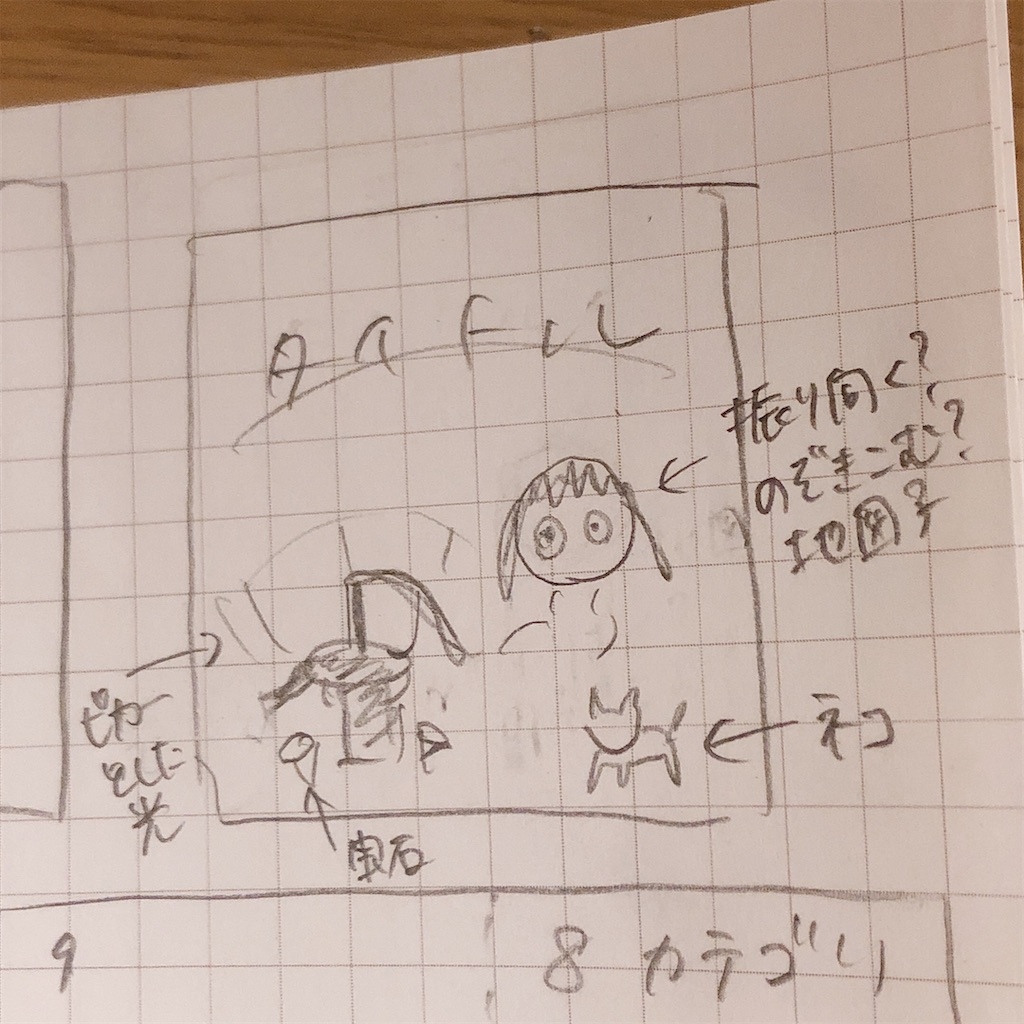 タイトル
振り向く?
のぞきこむ?
地図を
ピカー
とした
光
ネコ
宝石
9
8 カテゴリ